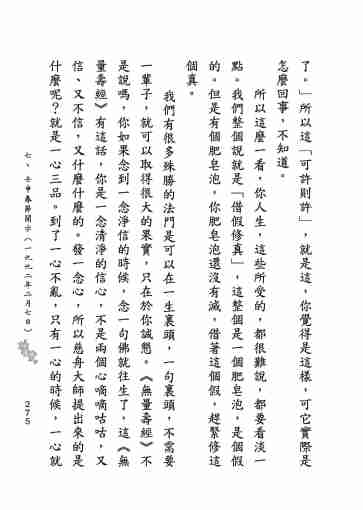 了。」所以這「可許則許」，就是這，你覺得是這樣，可它實際是
怎麼回事，不知道。
所以這麼一看，你人生，這些所受的，都很難說，都要看淡一
點。我們整個說就是「借假修真」，這整個是一個肥皂泡，是個假
的。但是有個肥皂泡，你肥皂泡還沒有滅，借著這個假，趕緊修這
個真。
我們有很多殊勝的法門是可以在一生裏頭，一句裏頭，不需要
一輩子，就可以取得很大的果實，只在於你誠懇。《無量壽經》不
是說嗎，你如果念到一念淨信的時候，念一句佛就往生了。這《無
量壽經》有這話，你是一念清淨的信心，不是兩個心嘀嘀咕咕，又
信、又不信，又什麼什麼的。發一念心，所以慈舟大師提出來的是
什麼呢？就是一心三品。到了一心不亂，只有一心的時候，一心就
七、壬申春節開示（一九九二年二月七日）
275